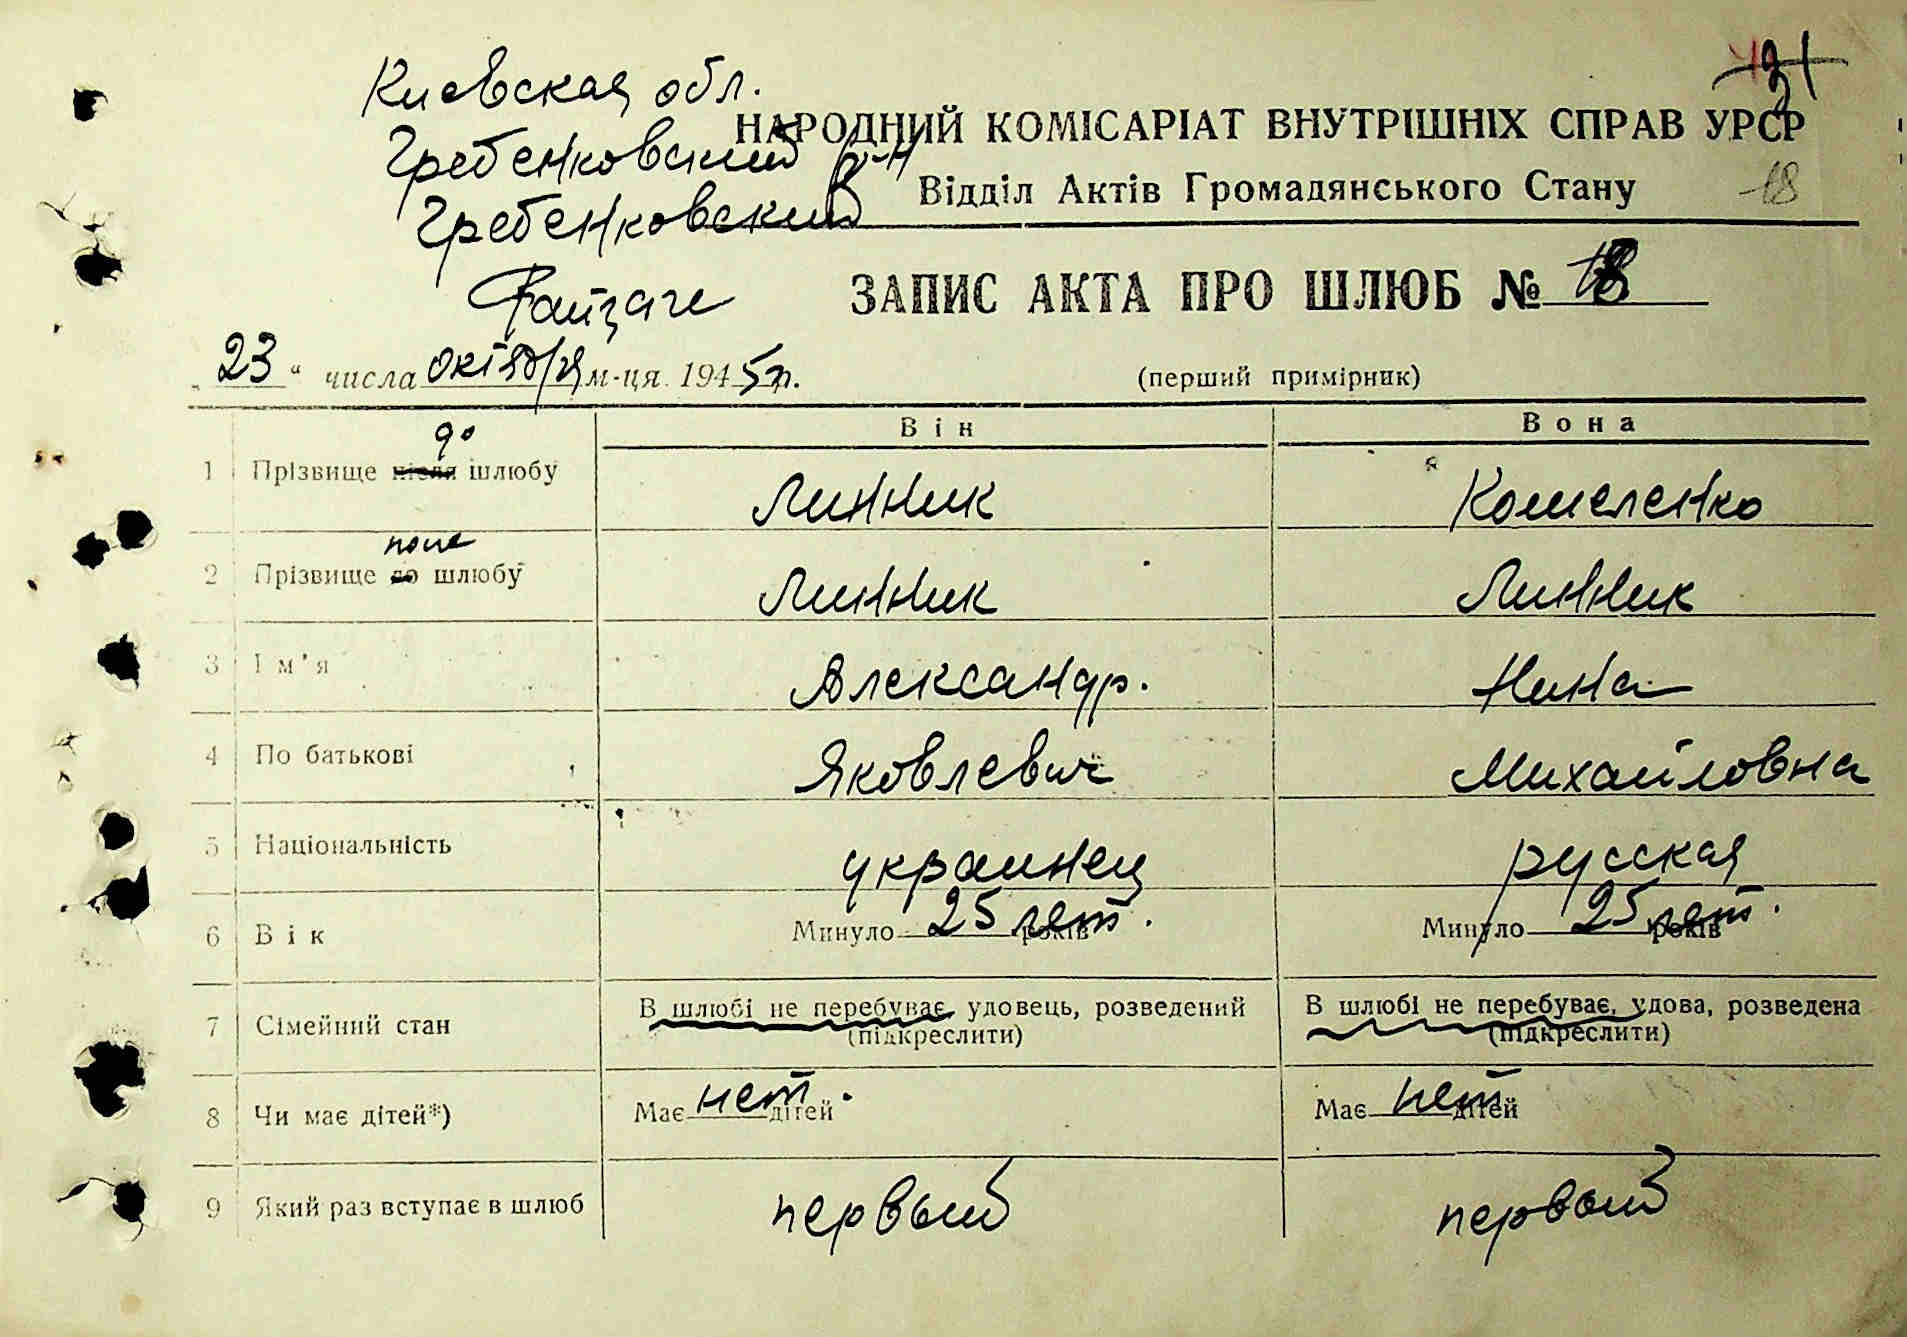 Киевская обл.
НАРОДНИЙ КОМІСАРІАТ ВНУТРІШНІХ СПРАВ УРСР
Гребенковский р-н
Відділ Актів Громадянського Стану 18
Гребенковский
Райзагс
ЗАПИС АКТА ПРО ШЛЮБ № 18
„23“ числа октября м-ця 1945 р.
(перший примірник)
Він Вона
1 Прізвище після до шлюбу Линник Кошеленко
2 Прізвище до после шлюбу Линник Линник
3 Ім'я Александр. Нина
4 По батькові Яковлевич Михайловна
5 Національність украинец русская
6 Вік Минуло 25 лет. років Минуло 25 лет. років
7 Сімейний стан В шлюбі не перебуває, удовець, розведений (підкреслити) В шлюбі не перебуває, удова, розведена (підкреслити)
8 Чи має дітей*) Має нет. дітей Має нет дітей
9 Який раз вступає в шлюб первый первый